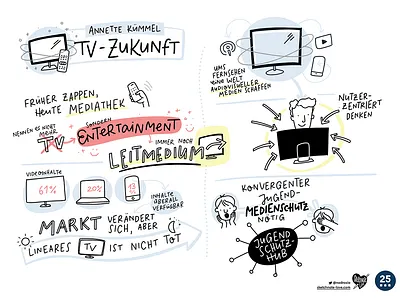 ANNETTE KÜMMEL
TV-ZUKUNFT
FRÜHER ZAPPEN,
HEUTE MEDIATHEK
NENNEN ES NICHT
MEHR
TV
SONDERN
ENTERTAINMENT
IMMER NOCH
LEITMEDIUM
VIDEOINHALTE
61%
20%
13
%
INHALTE
ÜBERALL
VERFÜGBAR
MARKT VERÄNDERT
SICH, ABER
LINEARES TV IST NICHT TOT
UMS
FERNSEHEN
EINE WELT
AUDIOVISUELLER
MEDIEN SCHAFFEN
NUTZER-
ZENTRIERT
DENKEN
KONVERGENTER
JUGEND-
MEDIENSCHUTZ
NÖTIG
JUGEND
SCHUTZ-
HUB
25